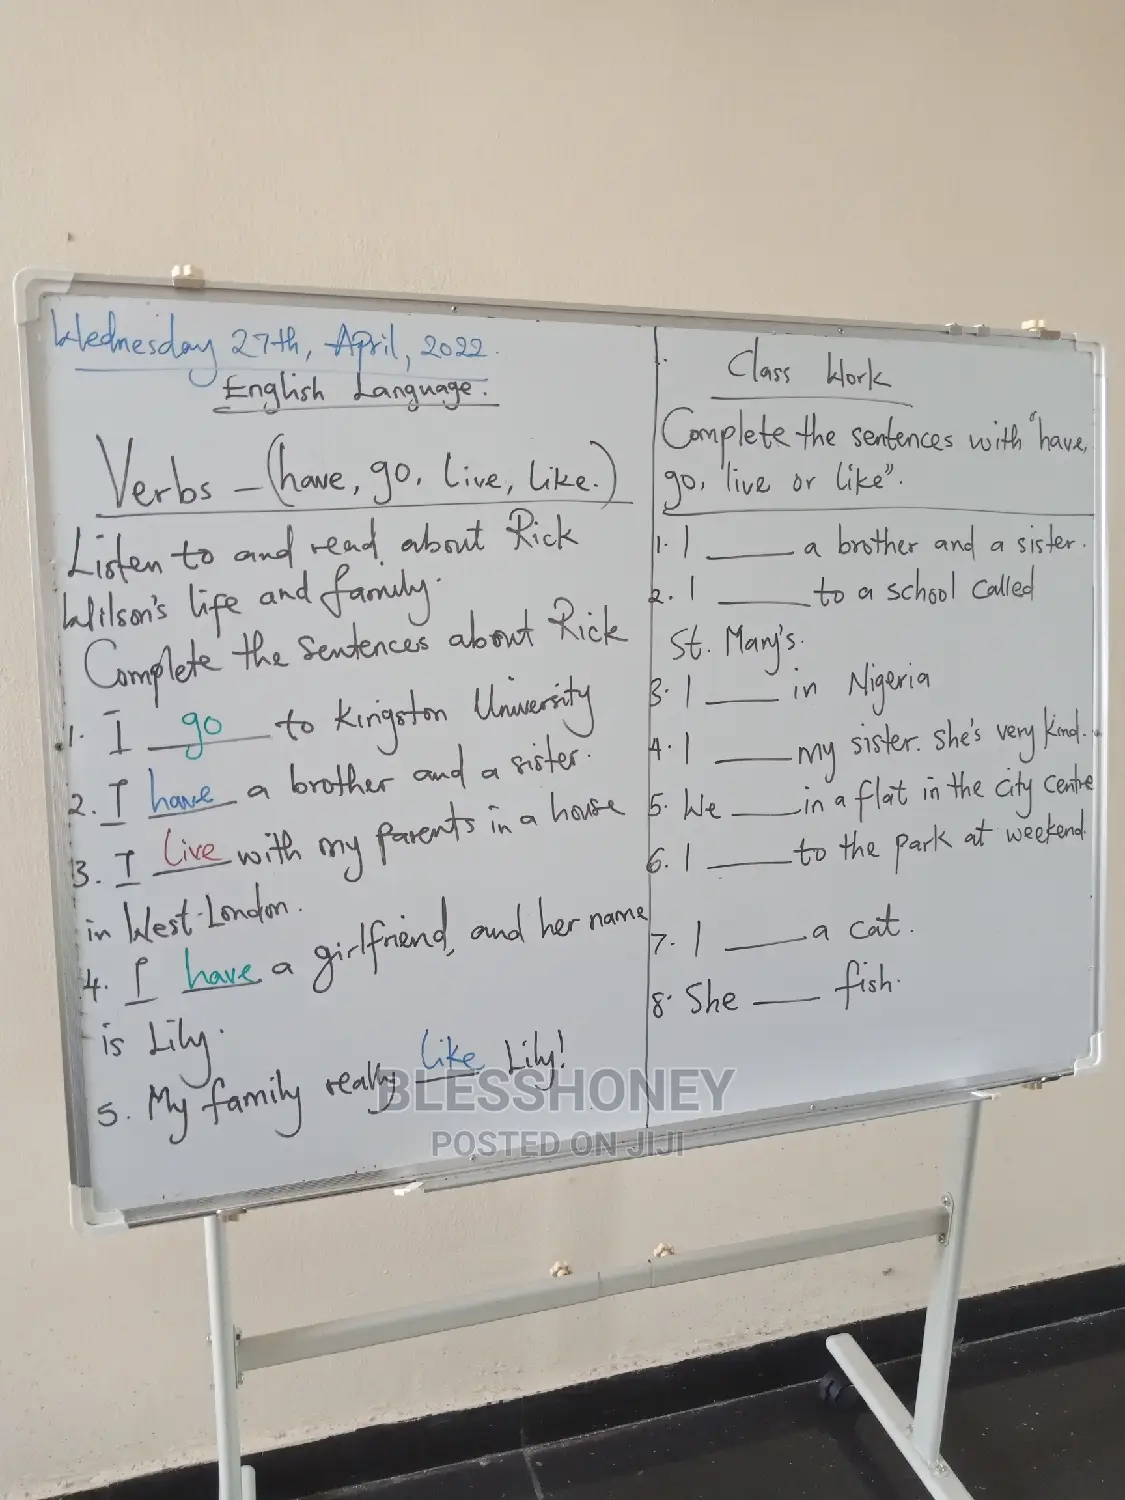 Wednesday 27th, April, 2022.
English Language.
Verbs - (have, go, live, like.)
Listen to and read about Rick
Wilson's life and family.
Complete the sentences about Rick
1. I go to Kingston University
2. I have a brother and a sister.
3. I live with my parents in a house
in West-London.
4. I have a girlfriend, and her name
is Lily.
5. My family really like Lily!
Class Work
Complete the sentences with "have,
go, live or like".
1. I ____ a brother and a sister.
2. I ____ to a school called
St. Mary's.
3. I ____ in Nigeria
4. I ____ my sister. She's very kind.
5. We ____ in a flat in the city centre
6. I ____ to the park at weekend.
7. I ____ a cat.
8. She ____ fish.
BLESSHONEY
POSTED ON JIJI